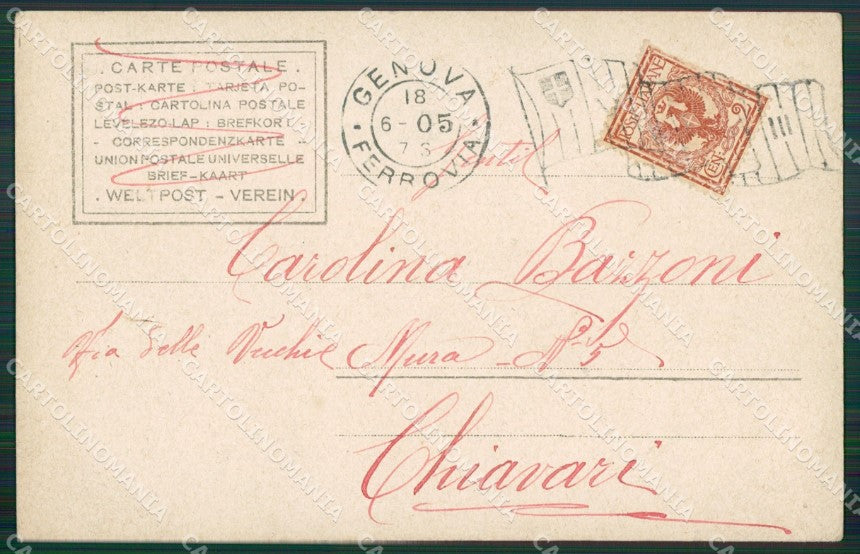 . CARTE POSTALE .
POST-KARTE : TARJETA PO-
STAL : CARTOLINA POSTALE
LEVELEZO LAP : BREFKORT
- CORRESPONDENZKARTE -
UNION POSTALE UNIVERSELLE
BRIEF-KAART
. WELTPOST - VEREIN .
GENOVA
18
6-05
7 S
• FERROVIA •
POSTE ITALIANE
CENT 2
Gentil
Carolina Bazzoni
Via delle Vecchie Mura - Nº 5
Chiavari
CARTOLINOMANIA